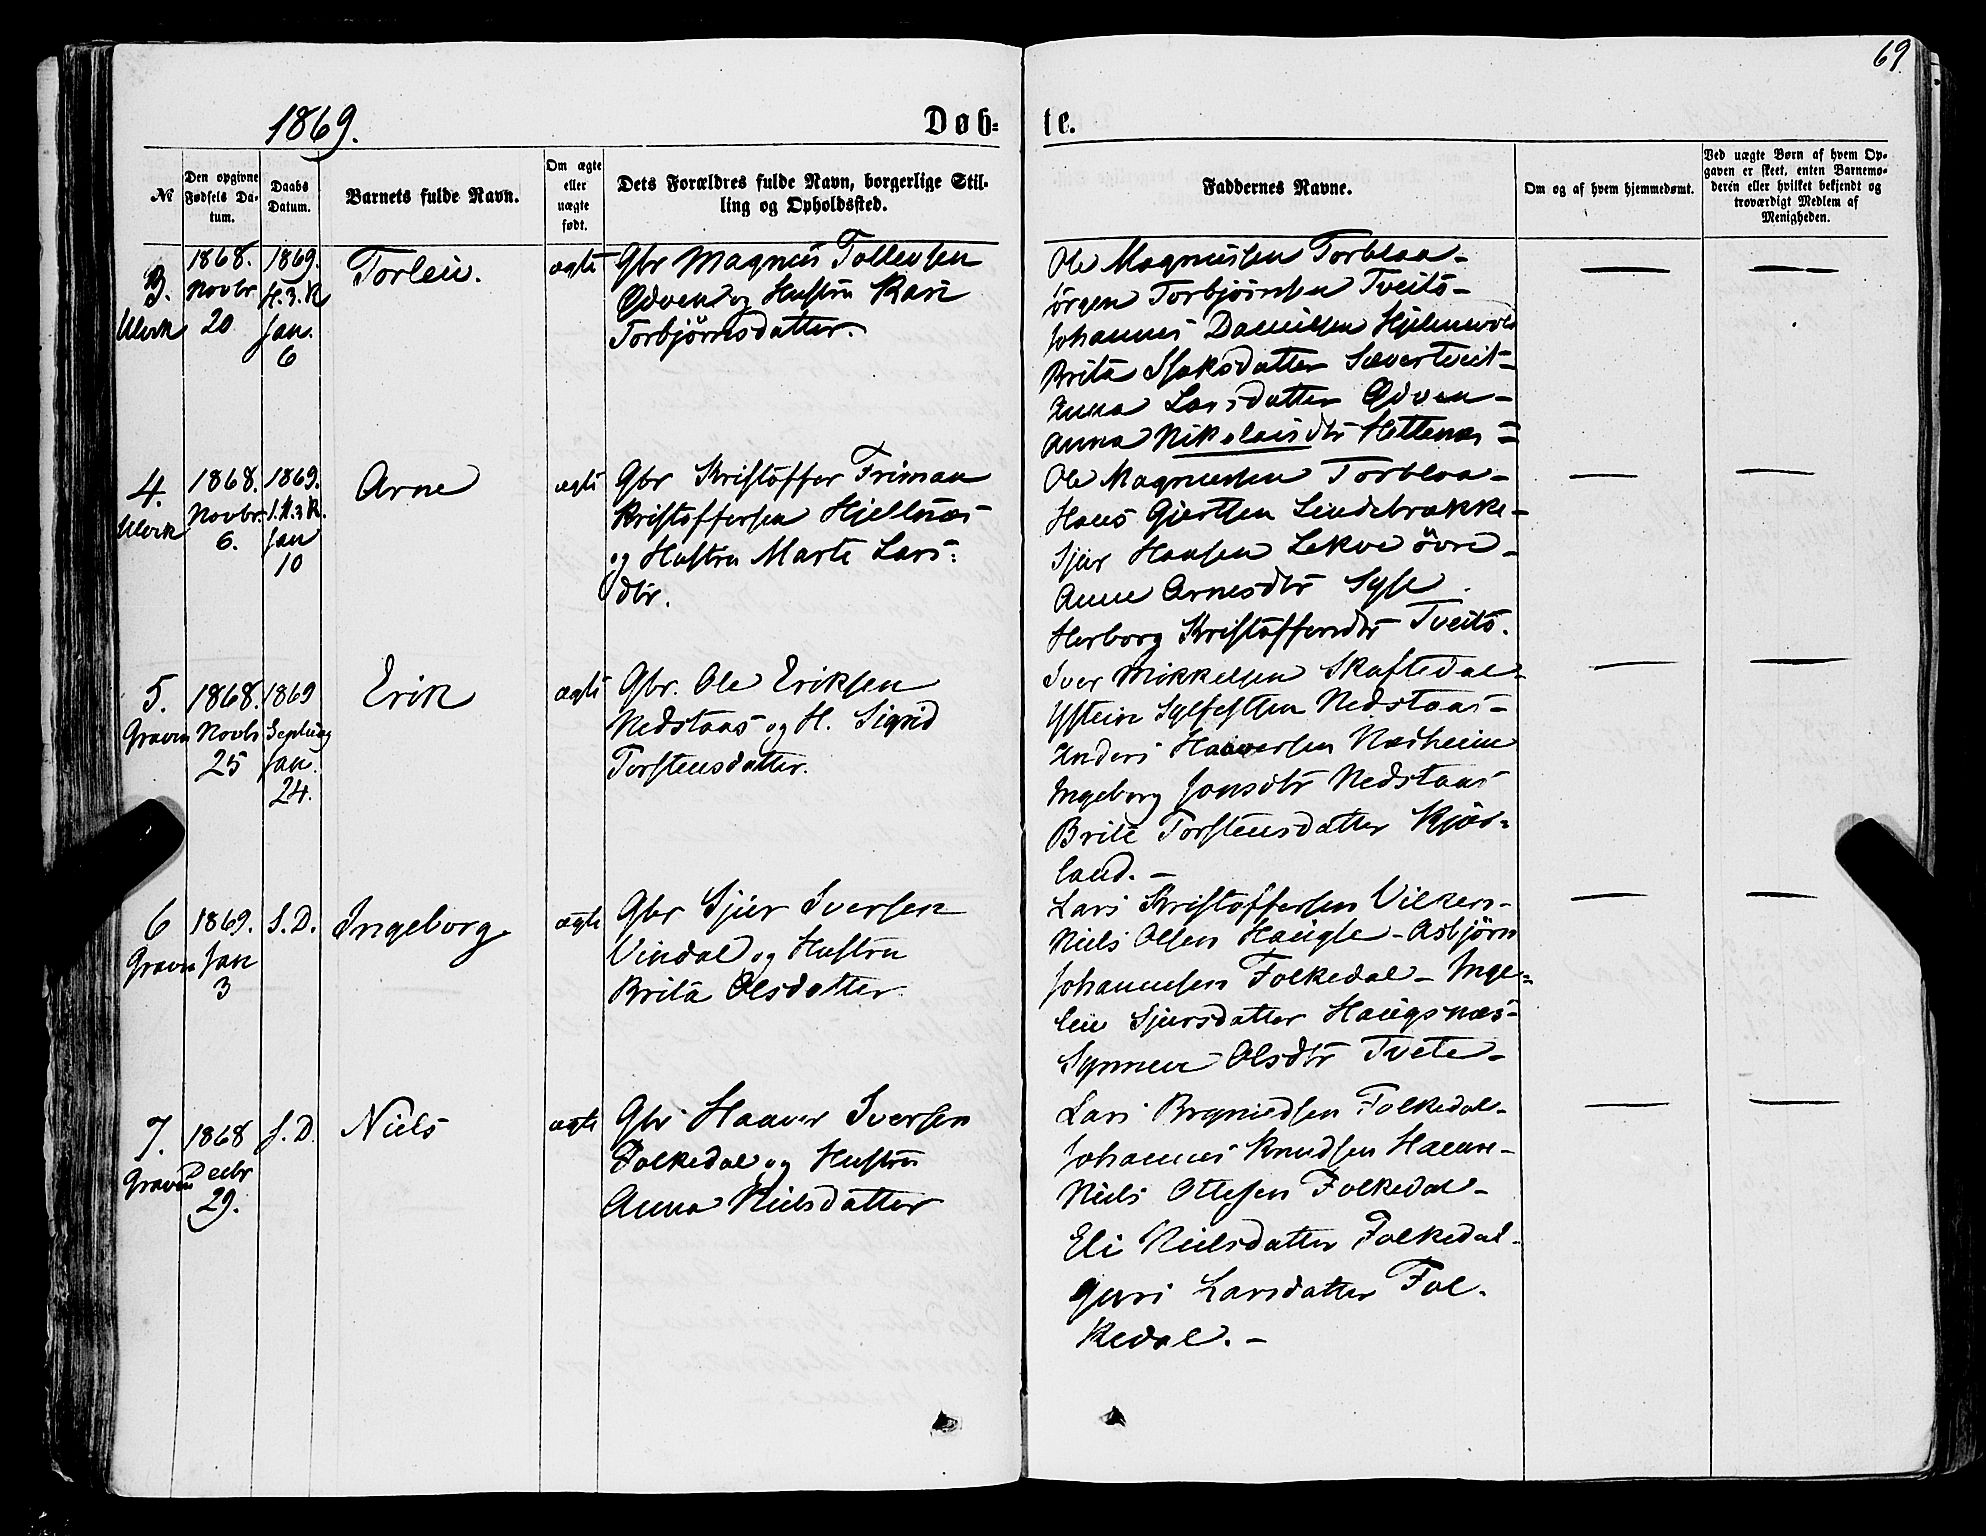 69.
1869.
Døb=
te.
№
Den opgivne Fødsels Da-
tum.
Daabs
Datum.
Barnets fulde Navn.
Om ægte
eller
uægte
født.
Dets Forældres fulde Navn, borgerlige Stil-
ling og Opholdssted.
Faddernes Navne.
Om og af hvem hjemmedømt.
Ved uægte Børn af hvem Op-
gaven er skeet, enten Barnemo-
deren eller hvilket bekjendt og
troværdigt Medlem af
Menigheden.
3.
Ulvik
1868.
Novbr
20
1869.
H.3.K
Jan.
6
Torleiv.
ægte
Gbr Magnus Tollevsen
Edven og Hustru Kari
Torbjörnsdatter.
Ole Magnussen Torbloa -
Jörgen Torbjörnsen Tveito -
Johannes Danielsen Hjelmevold
Brita Isaksdatter Sævertveit -
Anna Larsdatter Edven -
Anna Nikolaisdtr Hettenæs =
4.
Ulvik
1868.
Novbr.
6.
1869.
1.H.3K.
Jan
10
Arne
ægte
Gbr Kristoffer Friman
Kristoffersen Hjeltnæs
og Hustru Marte Lars:
dtr.
Ole Magnussen Torbloa -
Hans Gjertsen Lindebrække -
Sjur Hansen Lekve övre -
Anne Arnesdtr Syse .
Herborg Kristoffersdtr Tveito.
5.
Graven
1868.
Novbr
25
1869
Septuag
Jan.
24.
Erik
ægte
Gbr. Ole Eriksen
Nedstaas og H. Sigrid
Torstensdatter.
Iver Mikkelsen Skaftedal -
Ystein Sylfestsen Nedstaas -
Anders Haaversen Nædheim
Ingeborg Jonsdtr Nedstaas
Brite Torstensdatter Kjær-
land. -
6
Graven
1869.
Jan
3
S.D.
Ingeborg
ægte
Gbr Sjur Iversen
Vindal og Hustru
Brita Olsdatter.
Lars Kristoffersen Vilken -
Niels Olsen Haugse - Asbjörn
Johannesen Folkedal - Inge-
leiv Sjursdatter Haugsnæs -
Synneve Olsdtr Tveite -
7.
Graven
1868
Decbr
29.
S.D.
Niels
ægte
Gbr Haaver Iversen
Folkedal og Hustru
Anna Nielsdatter
Lars Brynildsen Folkedal -
Johannes Knudsen Hamre -
Niels Ottesen Folkedal -
Eli Nielsdatter Folkedal -
Guri Larsdatter Fol-
kedal. -